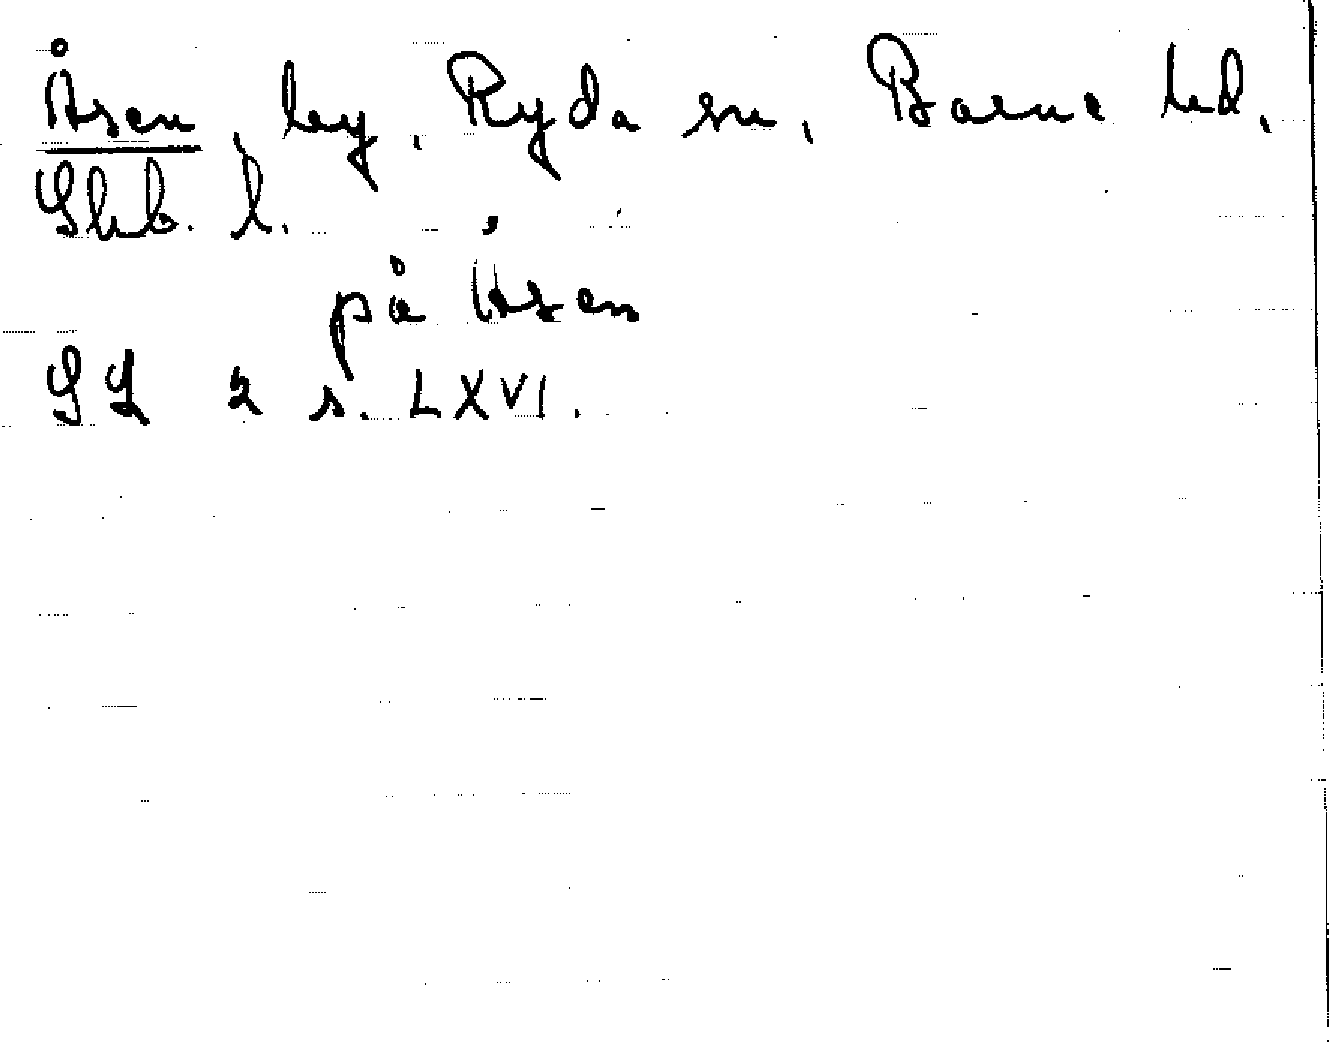 Åsen, by, Ryda sn, Barne hd,
Skb. l.
på Åsen
SL 2 s. LXVI.